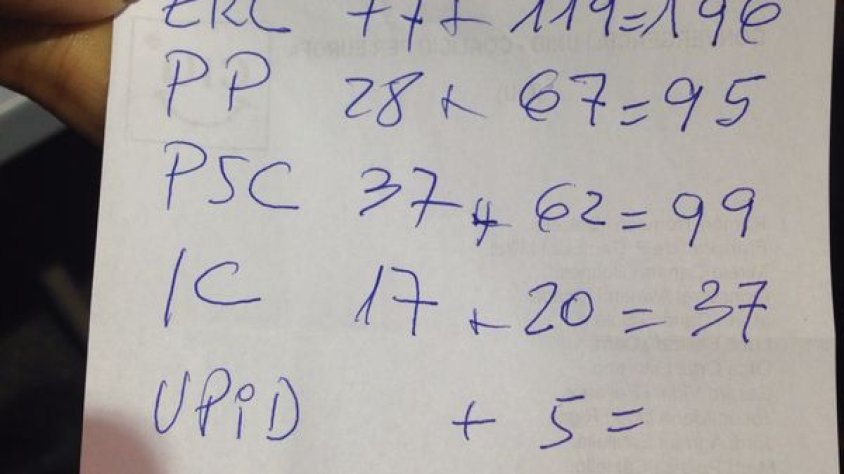 ERC 77 + 119 = 196
PP 28 + 67 = 95
PSC 37 + 62 = 99
IC 17 + 20 = 37
UPiD + 5 =